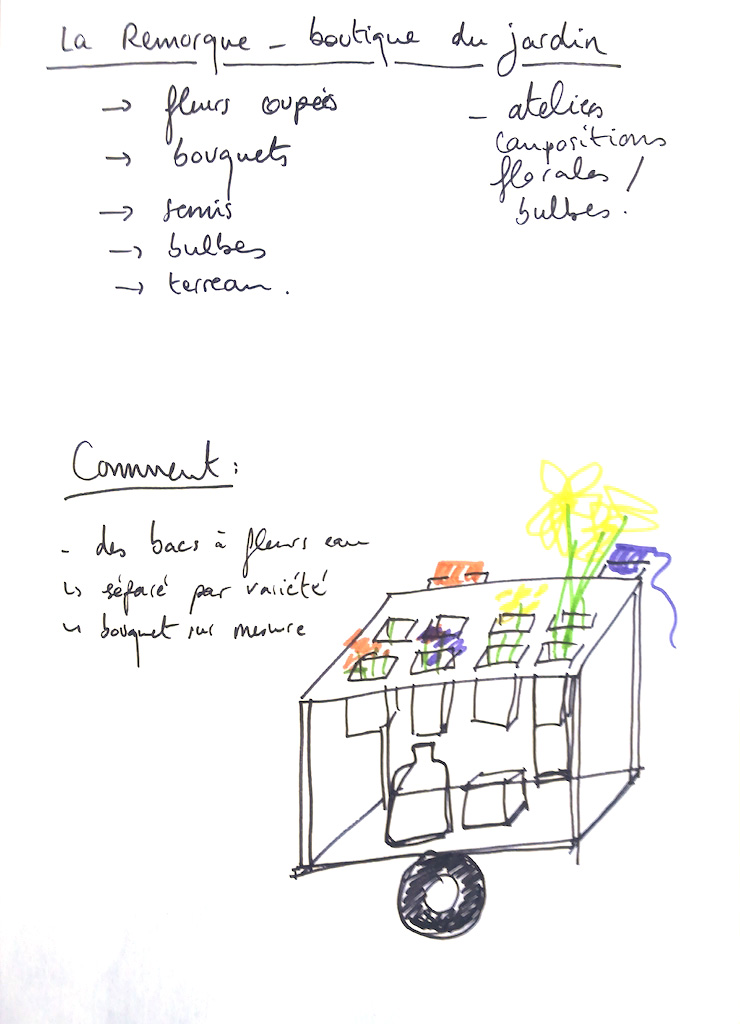 La Remorque - boutique du jardin
→ fleurs coupées
→ bouquets
→ semis
→ bulbes
→ terreau.
- ateliers
compositions
florales /
bulbes.
Comment :
- des bacs à fleurs eau
↳ séparé par variété
↳ bouquet sur mesure